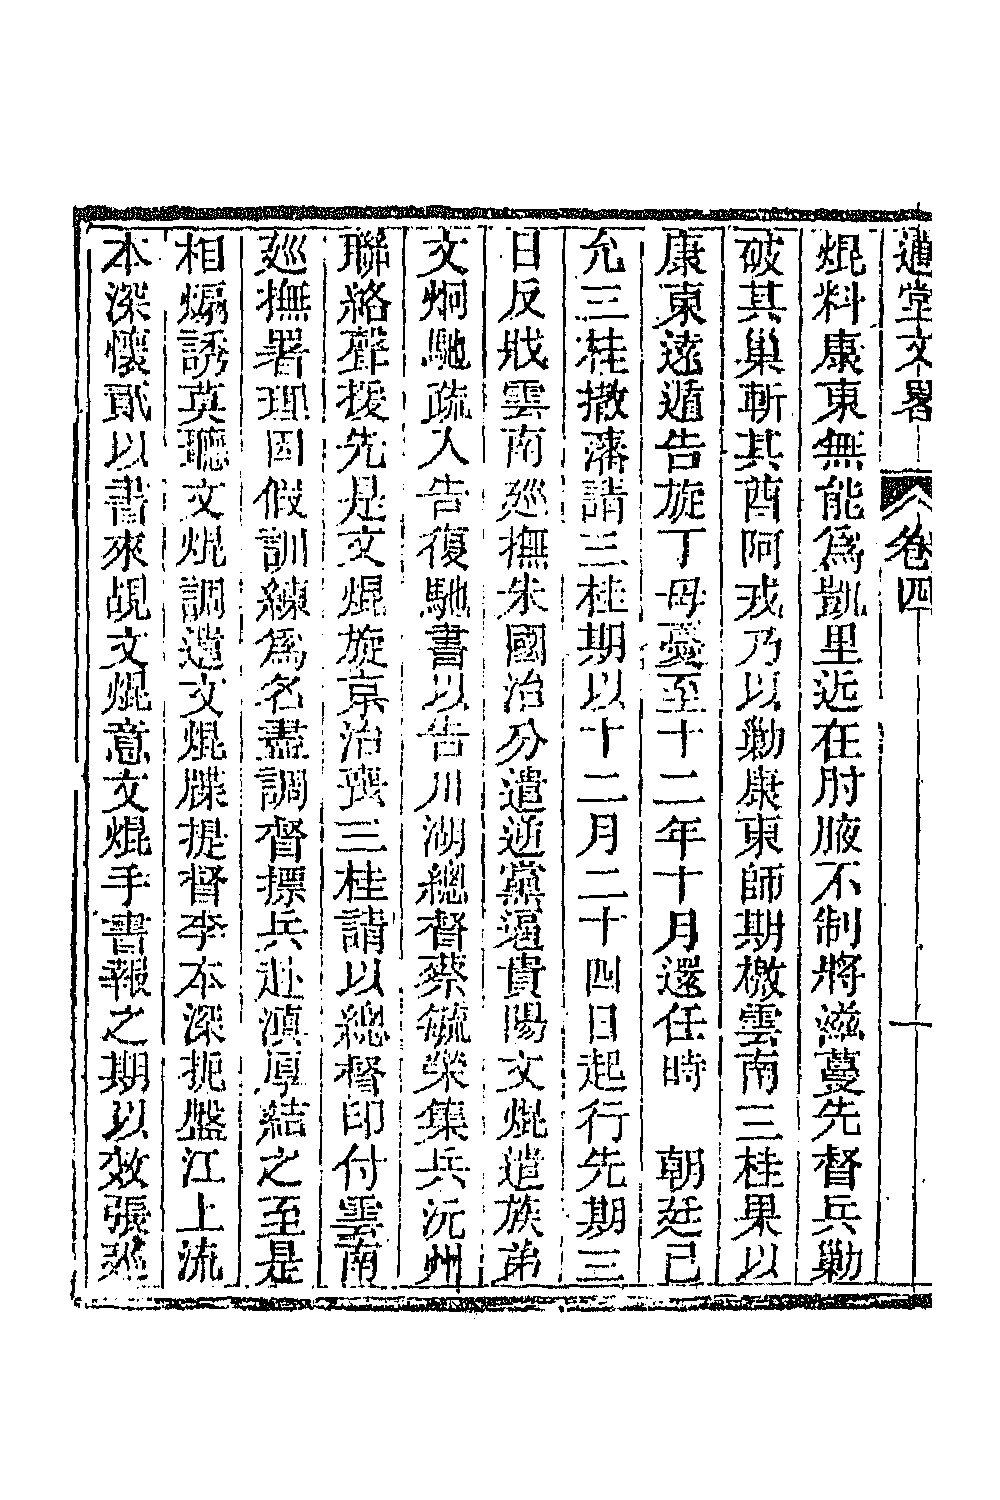 通堂文畧 卷四 一
焜料康東無能爲凱里近在肘腋不制將滋蔓先督兵勦
破其巢斬其酋阿戎乃以勦康東師期檄雲南三桂果以
康東遠遁告旋丁母憂至十二年十月還任時 朝廷已
允三桂撤藩請三桂期以十二月二十四日起行先期三
日反戕雲南廵撫朱國治分遣逆黨逼貴陽文焜遣族弟
文炯馳疏入告復馳書以告川湖總督蔡毓榮集兵沅州
聯絡聲援先是文焜旋京治喪三桂請以總督印付雲南
廵撫署理因假訓練爲名盡調督摽兵赴滇厚結之至是
相煽誘莫聽文焜調遣文焜牒提督李本深扼盤江上流
本深懷貳以書來覘文焜意文焜手書報之期以效張廵